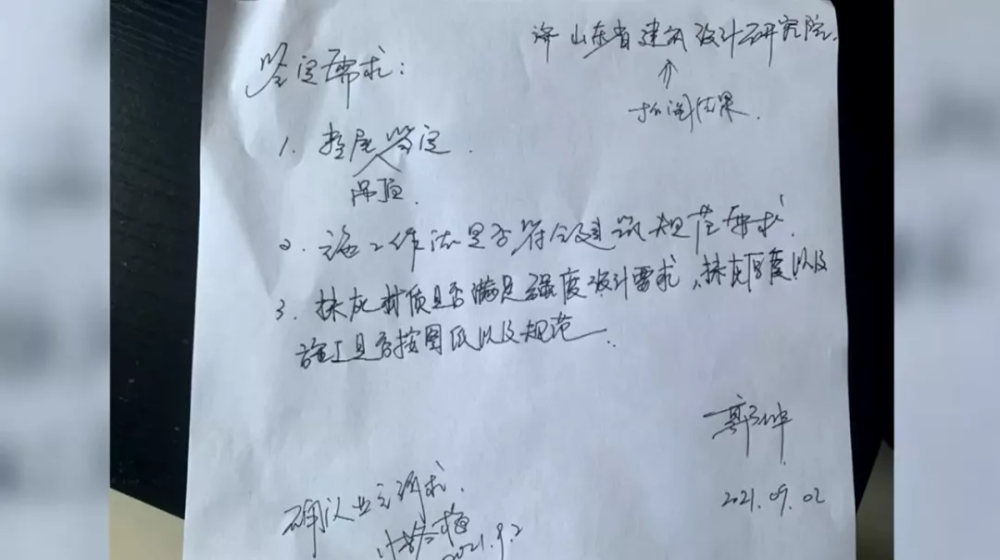 山东省建筑设计研究院.
鉴定需求:
结果.
1. 鉴定.
吊顶.
2. 施工作法是否符合建筑规范要求.
3. 抹灰材质是否满足强度设计需求、抹灰厚度以及
施工是否按图纸以及规范.
郭
2021.09.02
确认业主诉求.
2021.9.2